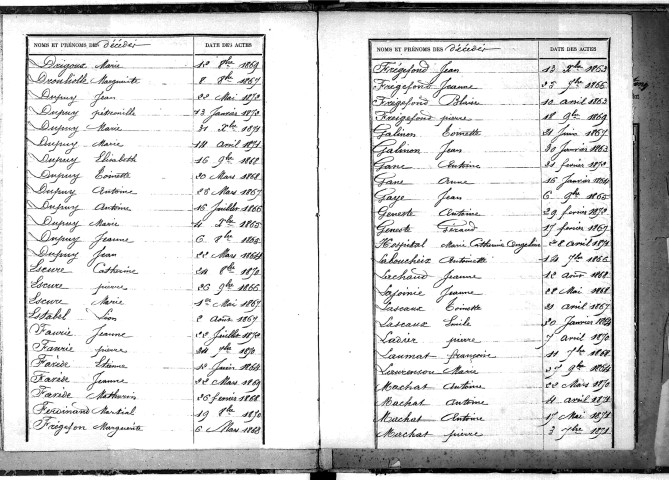 NOMS ET PRÉNOMS DES décédés DATE DES ACTES
Drigoux Marie 12 8bre 1869
Marguerite 8 8bre 1867
Dupuy Jean 22 Mai 1872
Dupuy pétronille 13 Janvier 1870
Dupuy Marie 21 Xbre 1871
Dupuy Marie 14 avril 1871
Dupuy Elisabeth 16 9bre 1868
Dupuy Toinette 20 Mars 1868
Dupuy Antoine 28 Mars 1867
Dupuy Antoine 16 Juillet 1866
Dupuy Marie 4 Xbre 1865
Dupuy Jeanne 6 8bre 1865
Dupuy Jean 22 Mars 1864
Escure Catherine 24 8bre 1872
Escure pierre 26 9bre 1866
Escure Marie 1er Mai 1867
Estabel Léon 2 Août 1867
Faurie Jeanne 22 Juillet 1872
Faurie pierre 24 7bre 1870
Farése Etienne 12 Juin 1864
Farése Jeanne 22 Mars 1869
Farése Mathurin 26 février 1868
Ferdinand Martial 19 8bre 1870
Frégefon Marguerite 6 Mars 1868
NOMS ET PRÉNOMS DES décédés DATE DES ACTES
Frégefond Jean 13 Xbre 1863
Frégefond Jeanne 25 7bre 1866
Frégefond Blaise 10 avril 1863
Frégefond pierre 18 9bre 1869
Galinon Toinette 21 Juin 1867
Galinon Jean 30 Janvier 1863
Gane Antoine 21 février 1872
Gane Anne 16 Janvier 1864
Gaye Jean 6 9bre 1865
Geneste Antoine 29 février 1872
Geneste Géraud 17 février 1869
Hospital Marie Catherine Angeline 28 avril 1871
Laboucheix Antoinette 14 7bre 1866
Lachaud Jeanne 12 août 1868
Lafoinie Jeanne 22 Mai 1868
Lascaux Toinette 21 avril 1867
Lascaux Emile 20 Janvier 1864
Ladier pierre 7 avril 1870
Laumat françoise 11 7bre 1868
Laurenson Marie 9bre 1864
Machat Antoine 22 Mars 1870
Machat Antoine 4 avril 1872
Machat Antoine 17 Mai 1872
Machat pierre 3 7bre 1871